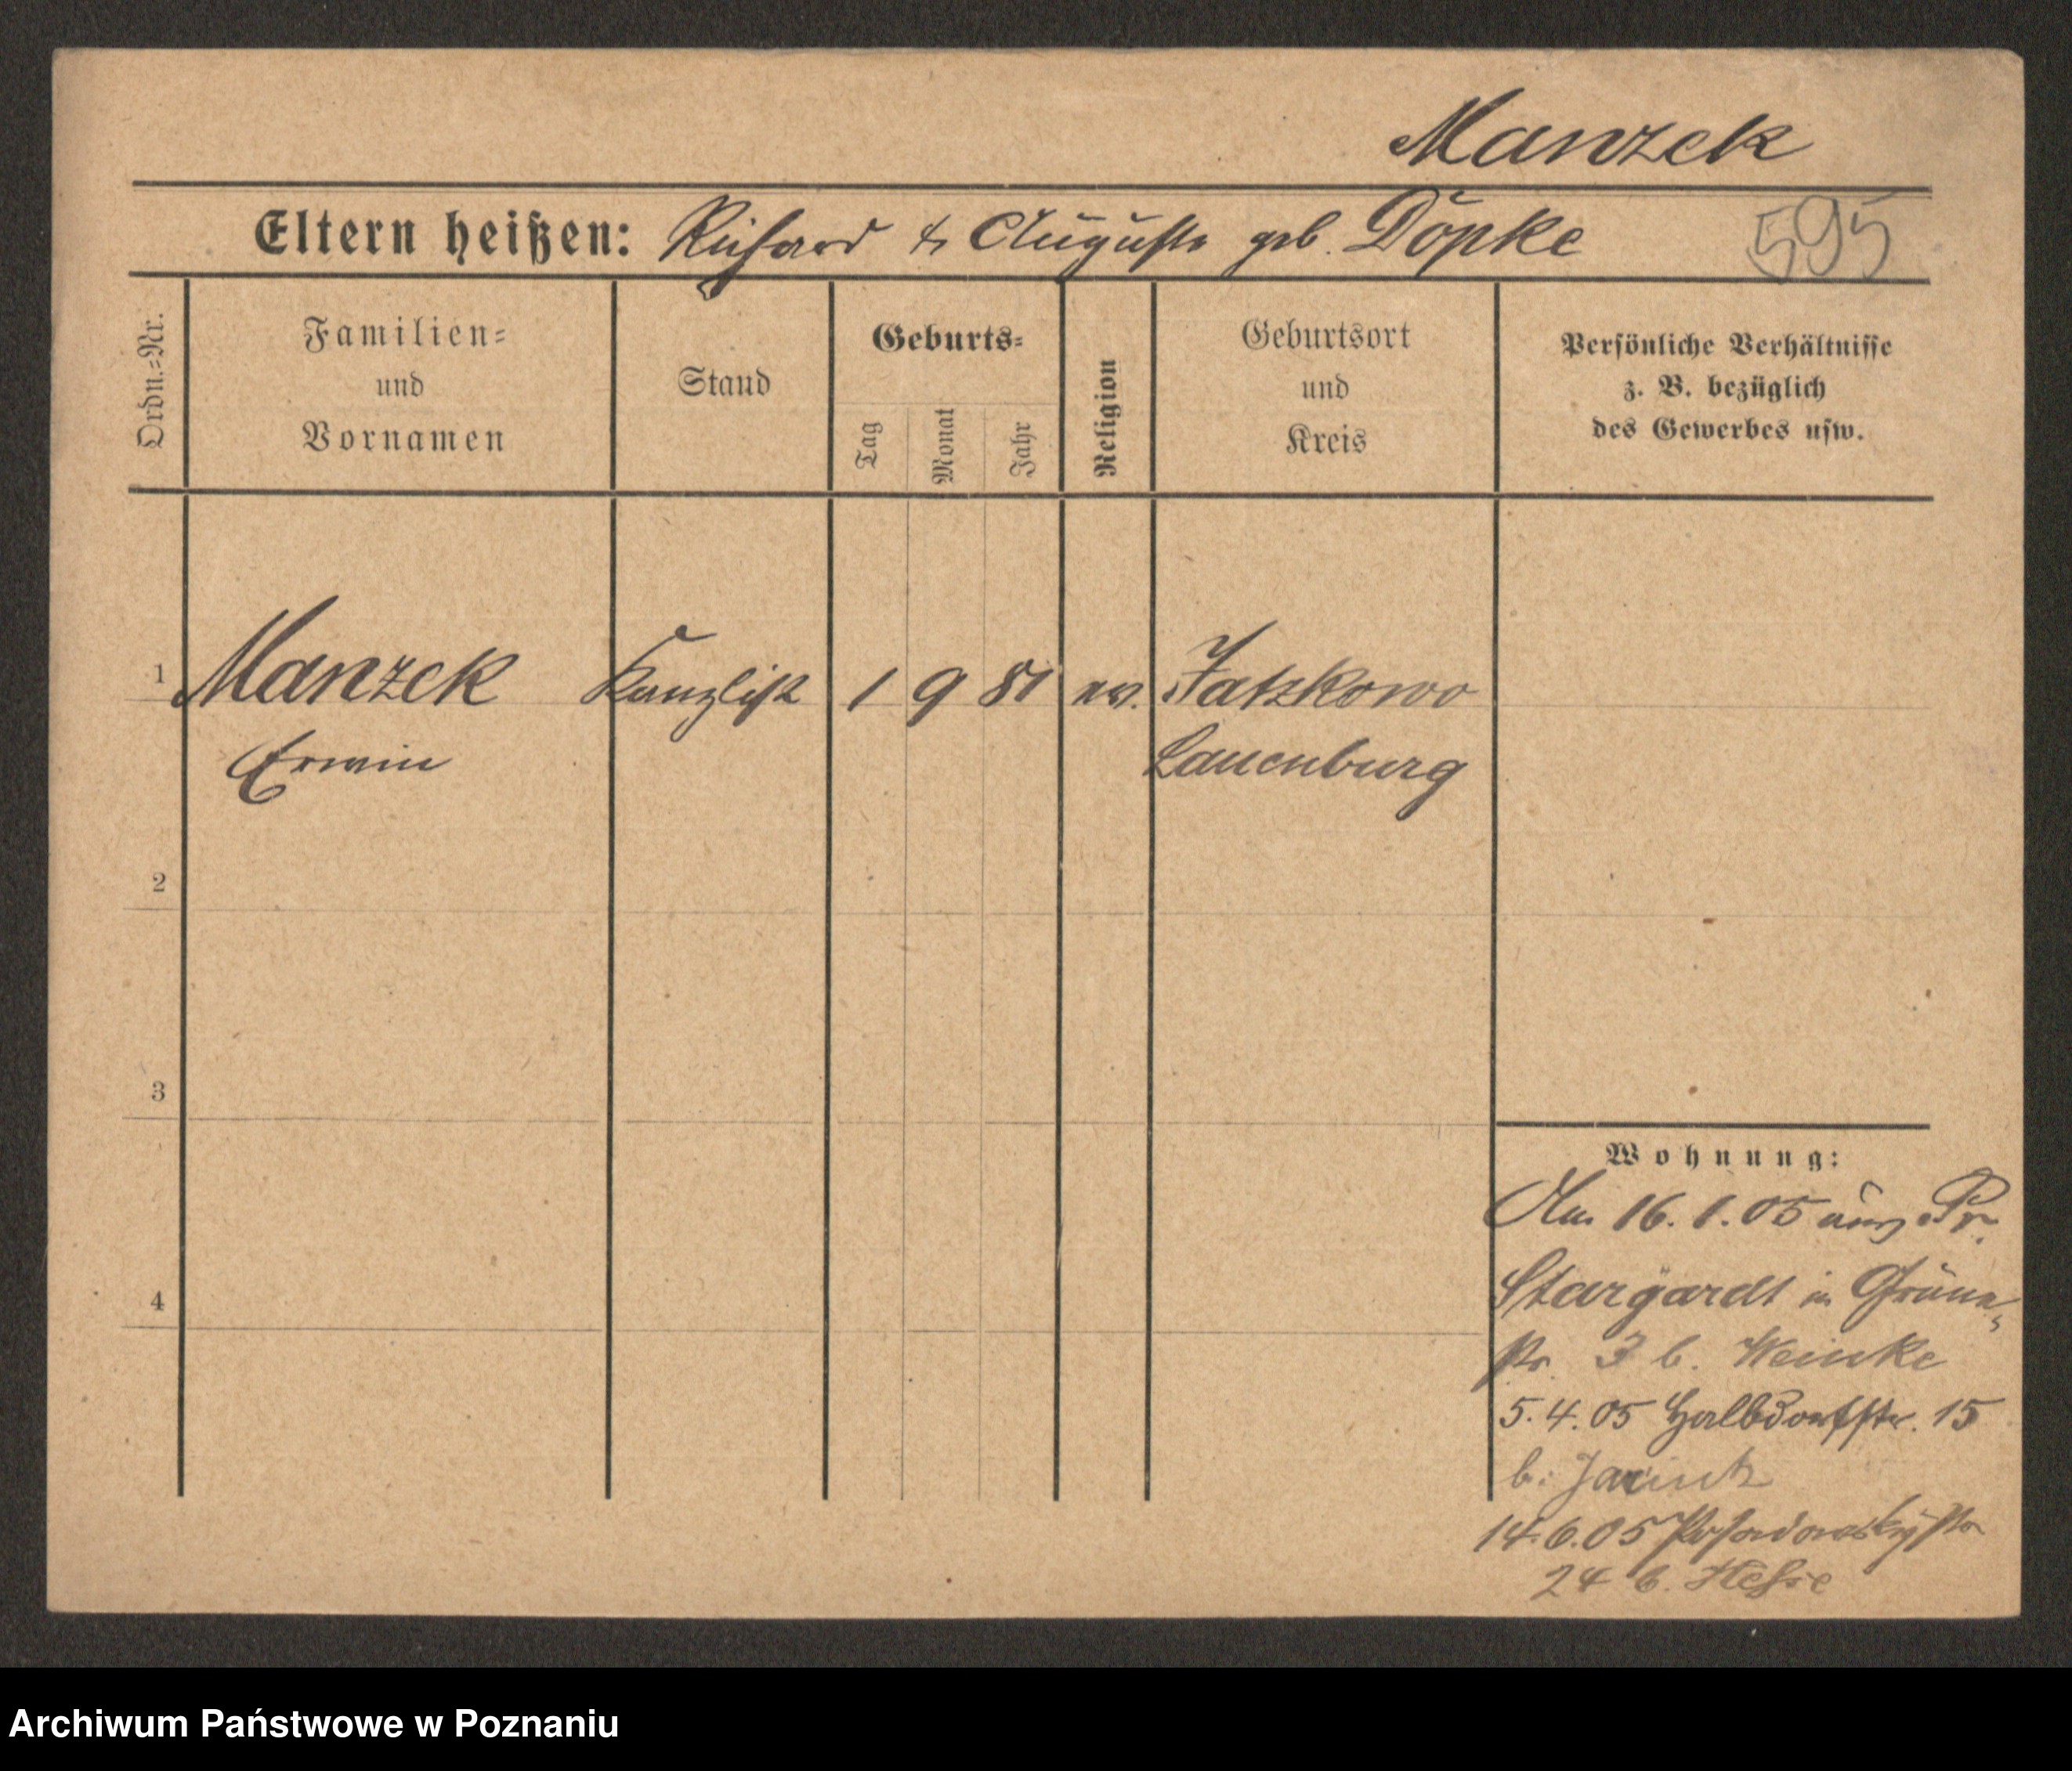 Manzek
Eltern heißen: Richard & Auguste geb. Döpke 595
Ordn.-Nr.
Familien-
und
Vornamen
Stand
Geburts-
Tag
Monat
Jahr
Religion
Geburtsort
und
Kreis
Persönliche Verhältnisse
z. B. bezüglich
des Gewerbes usw.
1 Manzek Kanzlist 1 9 81 ev. Jatzkowo
Erwin Lauenburg
2
3
4
Wohnung:
16. 1. 05 aus Pr.
Stargardt in Grüne-
str. 3 b. Weinke
5. 4. 05 Halbdorfstr. 15
b.
14. 6. 05 Posadowskystr
24 b. Hesse
Archiwum Państwowe w Poznaniu